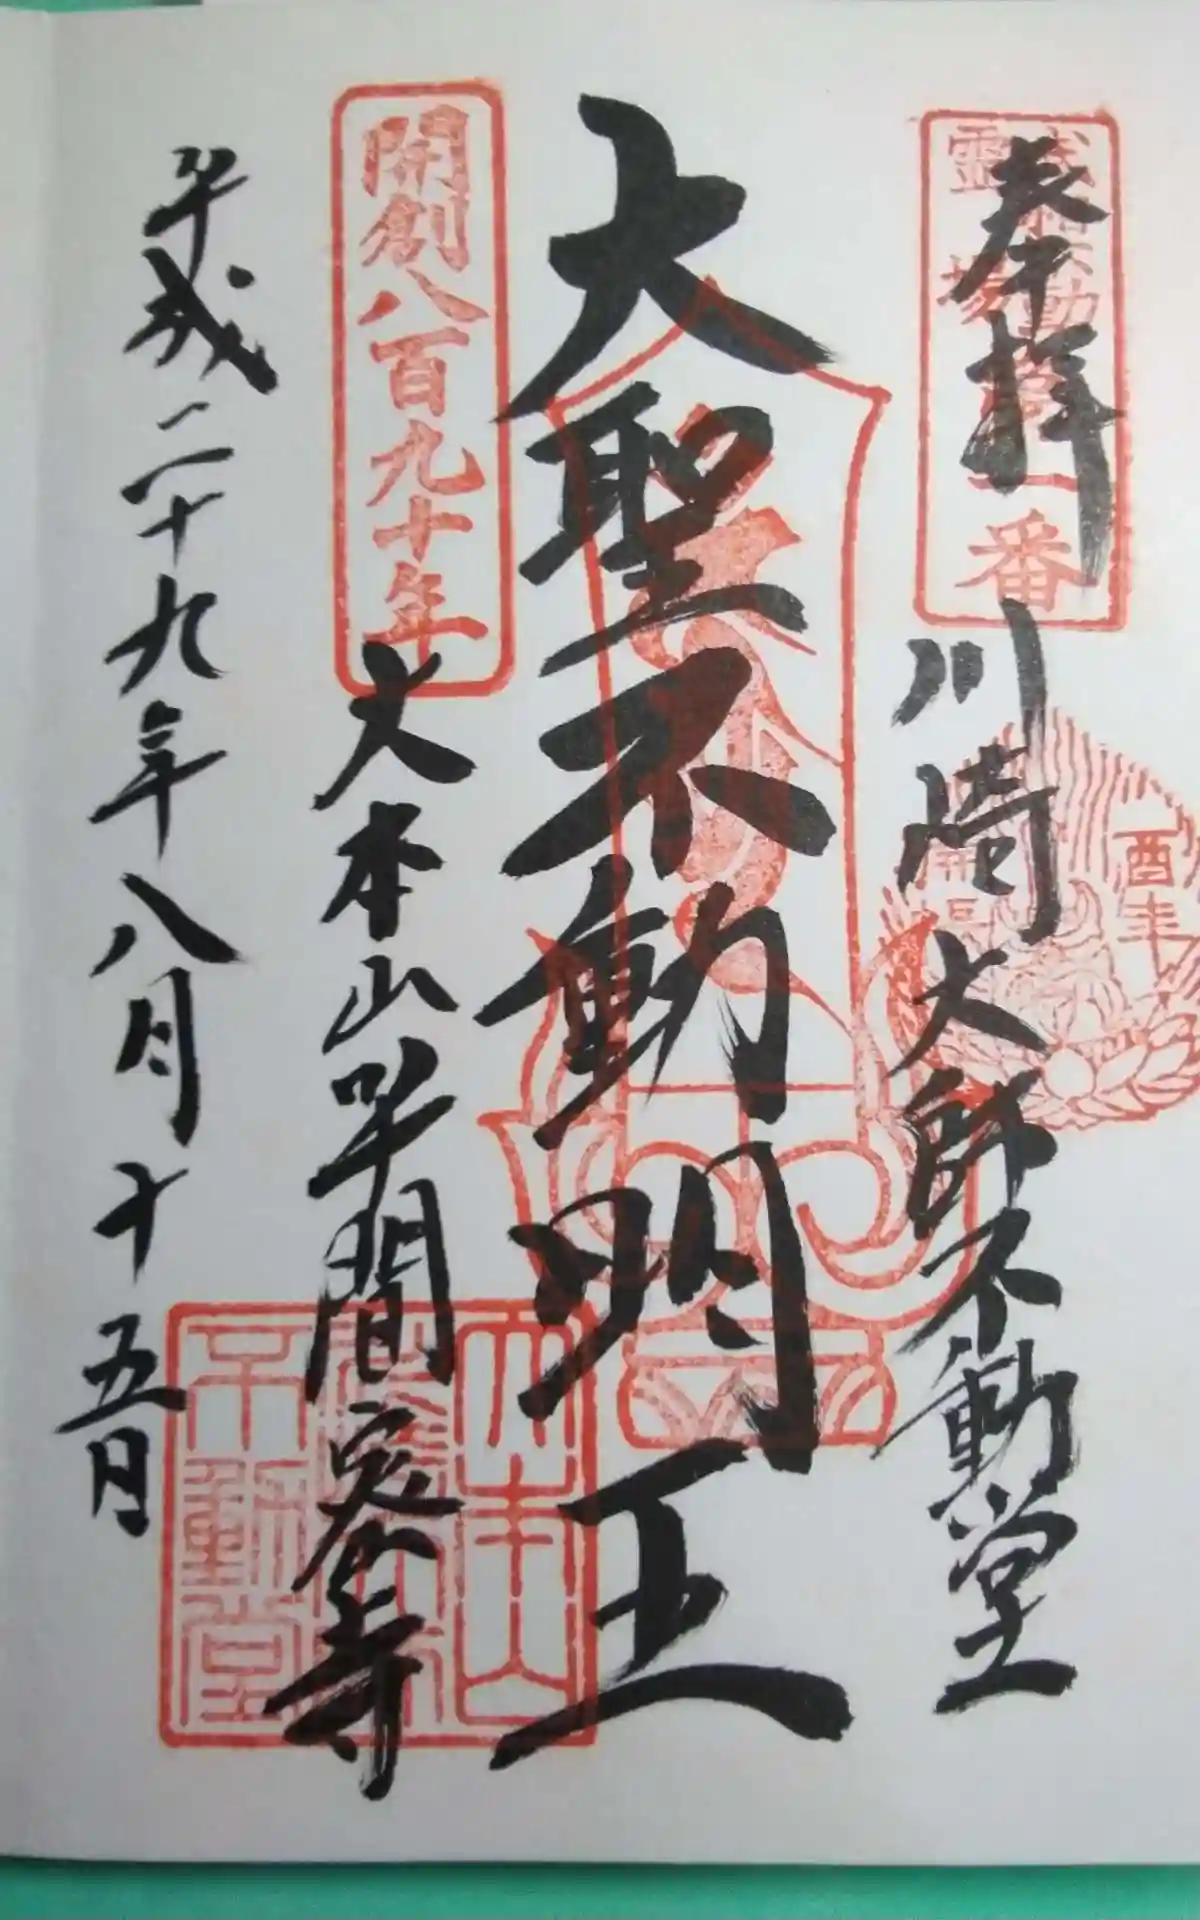 奉拝
川崎大師不動堂
番
酉年
大聖不動明王
開創八百九十年
大本山平間寺
大本山
不動堂
平成二十九年八月十五日